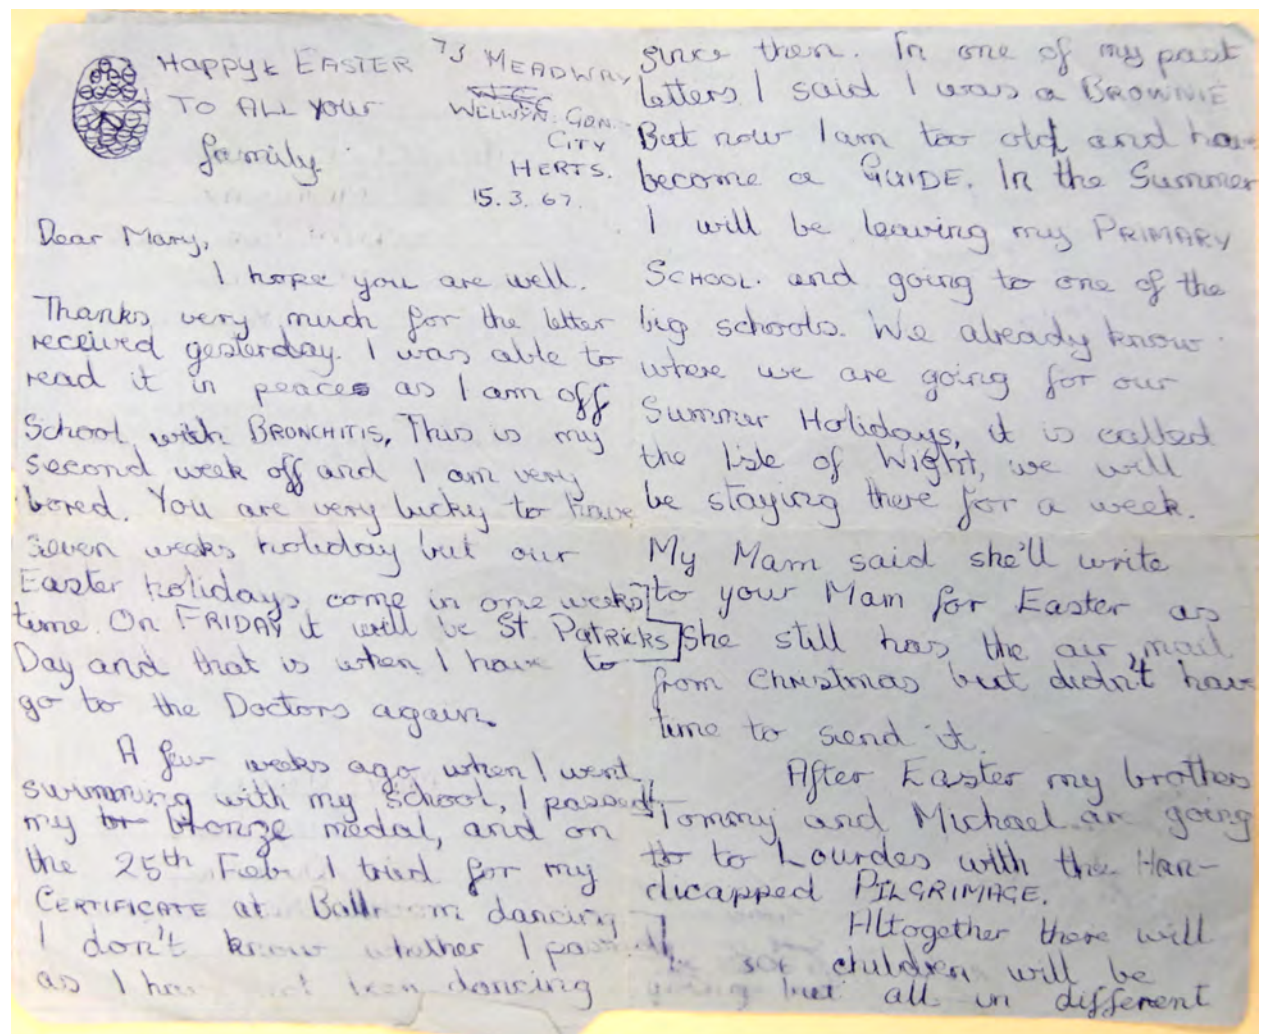 Happy EASTER
TO ALL your
family.
73 MEADWAY
W.G.C
WELWYN. GDN.
CITY
HERTS.
15.3.67.
Dear Mary,
I hope you are well.
Thanks very much for the letter
received yesterday. I was able to
read it in peace as I am off
School with BRONCHITIS, This is my
second week off and I am very
bored. You are very lucky to have
seven weeks holiday but our
Easter holidays come in one weeks
time. On FRIDAY it will be St PATRICKS
Day and that is when I have to
go to the Doctors again.
A few weeks ago when I went
swimming with my school, I passed
my br bronze medal, and on
the 25th Feb I tried for my
CERTIFICATE at Ballroom dancing
I don't know whether I passed
as I have not been dancing
since then. In one of my past
letters I said I was a BROWNIE
But now I am too old and have
become a GUIDE. In the Summer
I will be leaving my PRIMARY
SCHOOL. and going to one of the
big schools. We already know
where we are going for our
Summer Holidays, it is called
the Isle of Wight, we will
be staying there for a week.
My Mam said she'll write
to your Mam for Easter as
She still has the air mail
from Christmas but didn't have
time to send it.
After Easter my brothers
Tommy and Michael are going
to to Lourdes with the Han-
dicapped PILGRIMAGE.
Altogether there will
be children will be
going but all in different